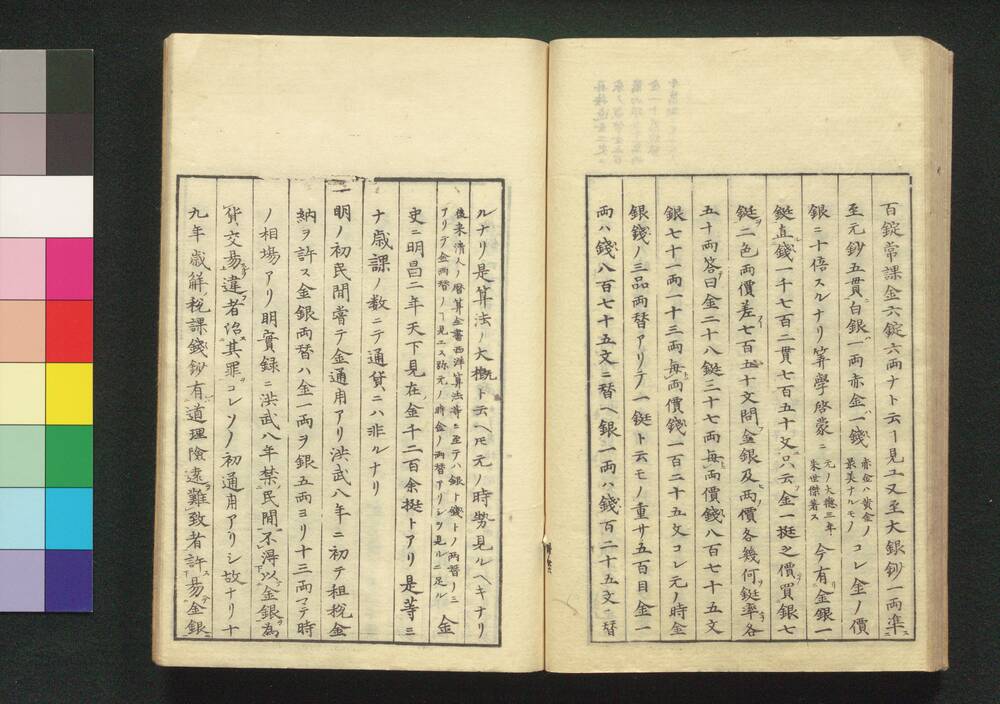 百錠常課金六錠六両ナト云ヿ見ユ又至大銀鈔一両準
至元鈔五貫白銀一両赤金一錢赤金ハ黄金ノ最美ナルモノコレ金ノ價
銀ニ十倍スルナリ筭學啓蒙ニ元ノ大德三年朱世傑著ス今有金銀一
鋌直錢一千七百二貫七百五十文只云金一挺之價買銀七
鋌二色両價差七百五十文問金銀及両價各幾何鋌率各
五十両答曰金二十八鋌三十七両毎両價錢八百七十五文
銀七十一両一十三両毎両價錢一百二十五文コレ元ノ時金
銀錢ノ三品両替アリテ一鋌ト云モノ重サ五百目金一
両ハ錢八百七十五文ニ替ヘ銀一両ハ錢百二十五文ニ替
ルナリ是算法ノ大概ト云ヘ𪜈元ノ時勢見ルヘキナリ
後来清人ノ暦算全書西洋算法等ニ至テハ銀ト錢トノ両替ノミアリテ金両替ノヿ見エス弥元ノ時金ノ両替アリシヲ見ルニ足ル金
史ニ明昌二年天下見在金千二百余挺トアリ是等ミ
ナ歳課ノ数ニテ通貨ニハ非ルナリ
一明ノ初民間嘗テ金通用アリ洪武八年ニ初テ租税金
納ヲ許ス金銀両替ハ金一両ヲ銀五両ヨリ十三両マテ時
ノ相場アリ明實録ニ洪武八年禁民間不得以金銀為
貨交易違者治其罪コレソノ初通用アリシ故ナリ十
九年歳解税課錢鈔有道理險遠難致者許易金銀